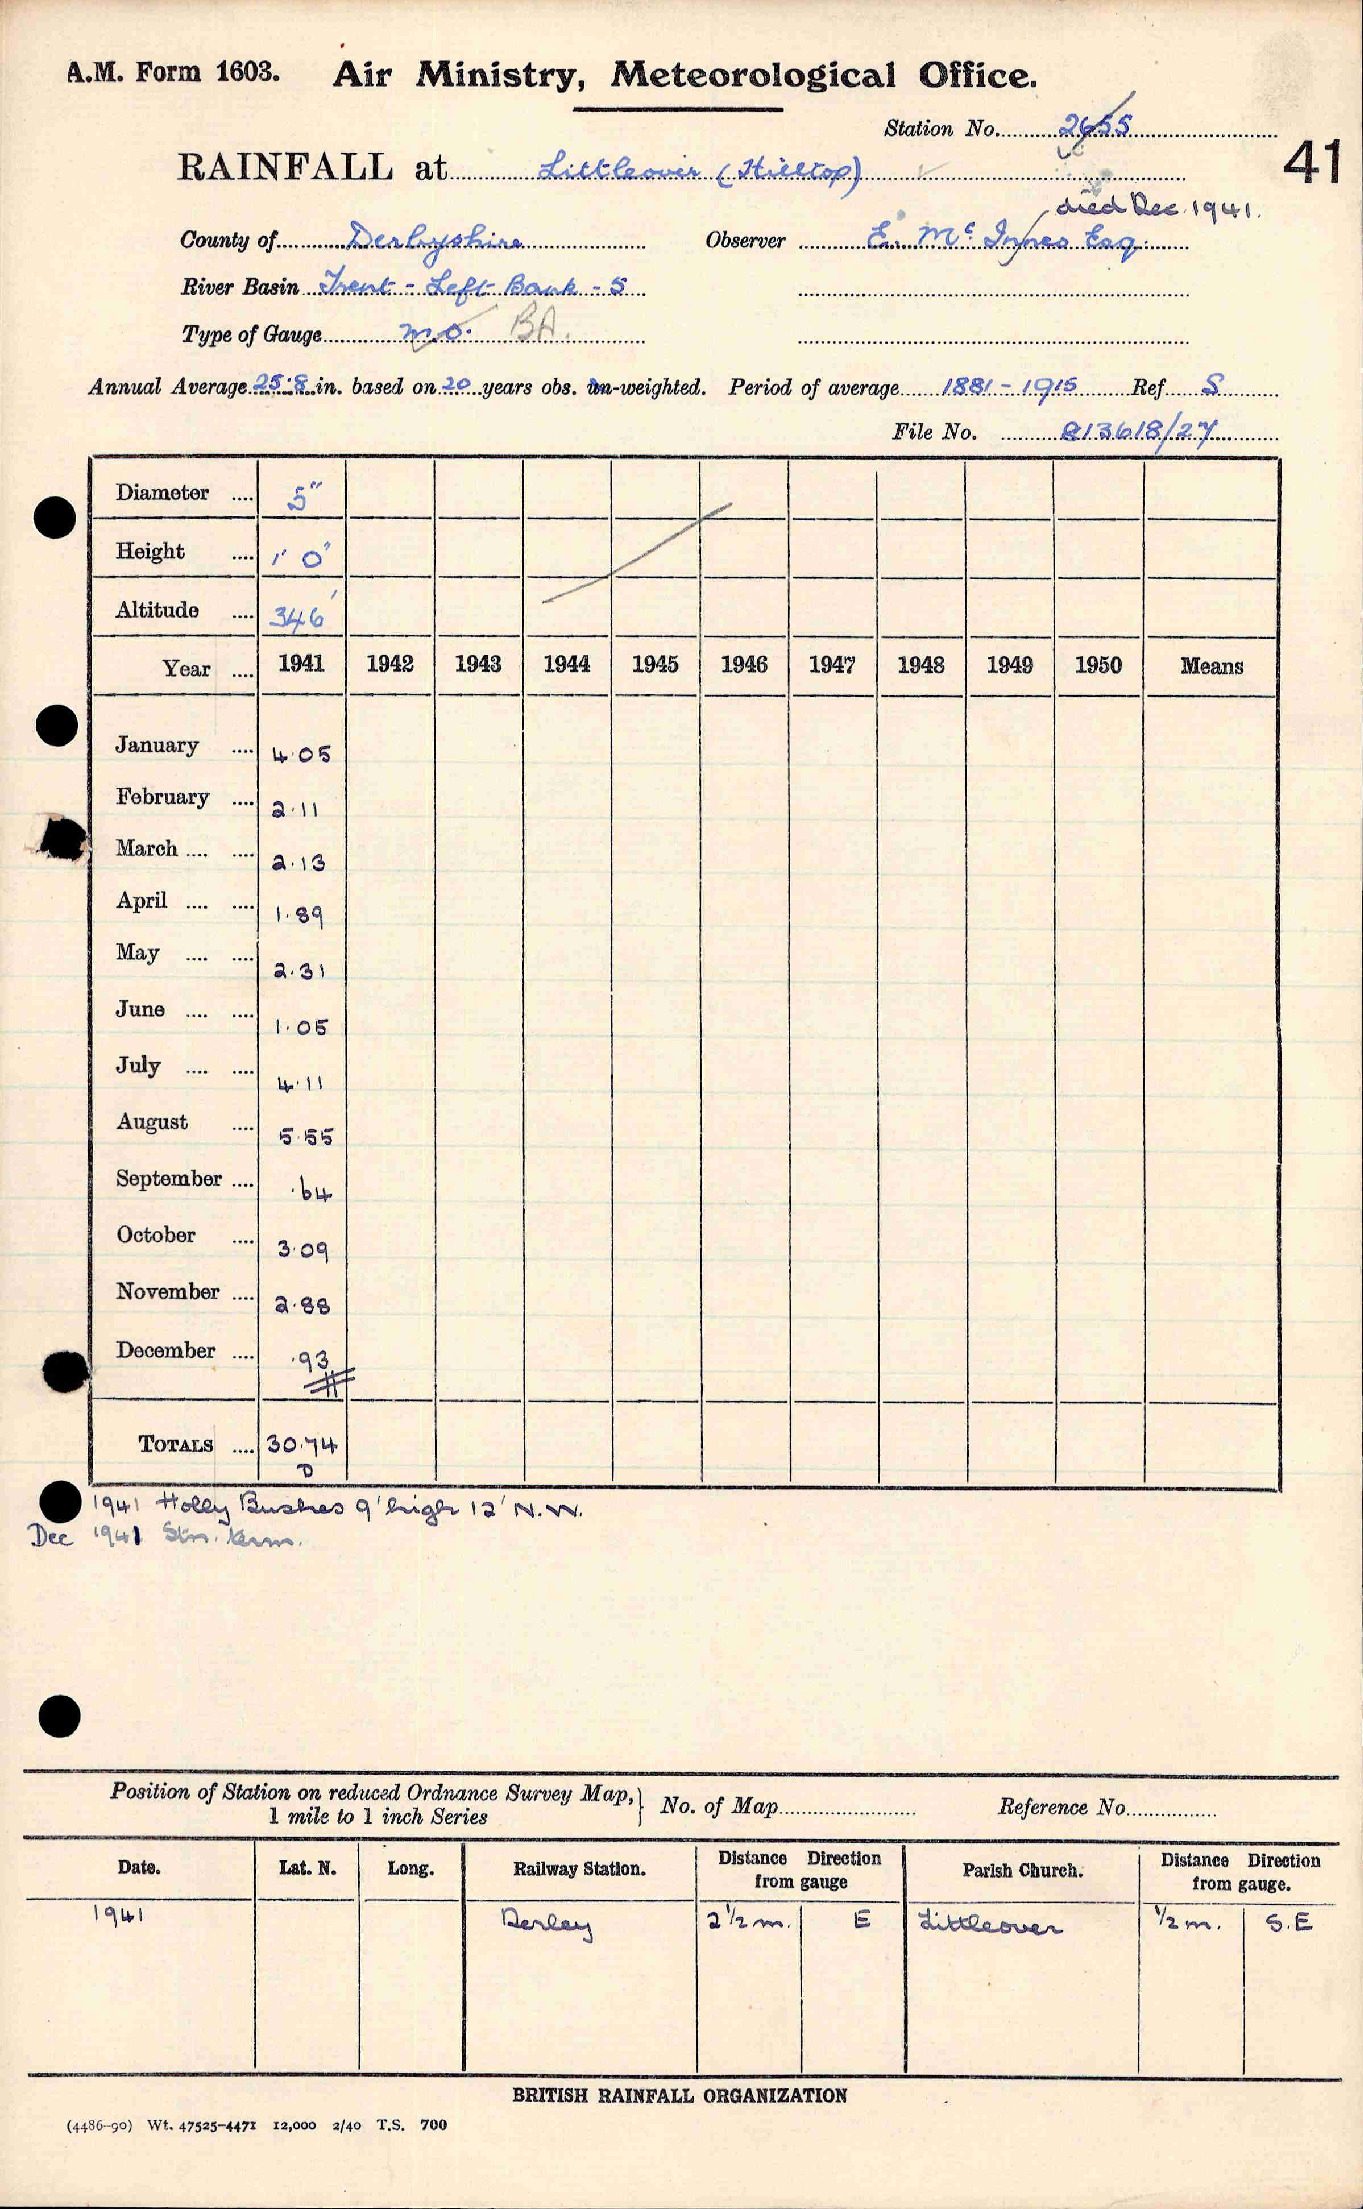 A.M. Form 1603. Air Ministry, Meteorological Office.
Station No. 2655
41
RAINFALL at Littleover (Hilltop)
died Dec. 1941.
County of Derbyshire Observer E. Mc Innes Esq.
River Basin Trent - Left Bank - 5
Type of Gauge M.O. BA.
Annual Average 25.8 in. based on 20 years obs. un-weighted. Period of average 1881-1915 Ref S
File No. 813618/27
Diameter .... 5"
Height .... 1' 0"
Altitude .... 346'
Year .... 1941 1942 1943 1944 1945 1946 1947 1948 1949 1950 Means
January .... 4.05
February .... 2.11
March .... .... 2.13
April .... .... 1.89
May .... .... 2.31
June .... .... 1.05
July .... .... 4.11
August .... 5.55
September .... .64
October .... 3.09
November .... 2.88
December .... .93
TOTALS .... 30.74
D
1941 Holly Bushes 9' high 12' N.W.
Dec 1941 Stn. term.
Position of Station on reduced Ordnance Survey Map, } No. of Map Reference No.
1 mile to 1 inch Series
Date. Lat. N. Long. Railway Station. Distance Direction from gauge Parish Church. Distance Direction from gauge.
1941 Derby 2 1/2 m. E Littleover 1/2 m. S.E
BRITISH RAINFALL ORGANIZATION
(4486-90) Wt. 47525-4471 12,000 2/40 T.S. 700